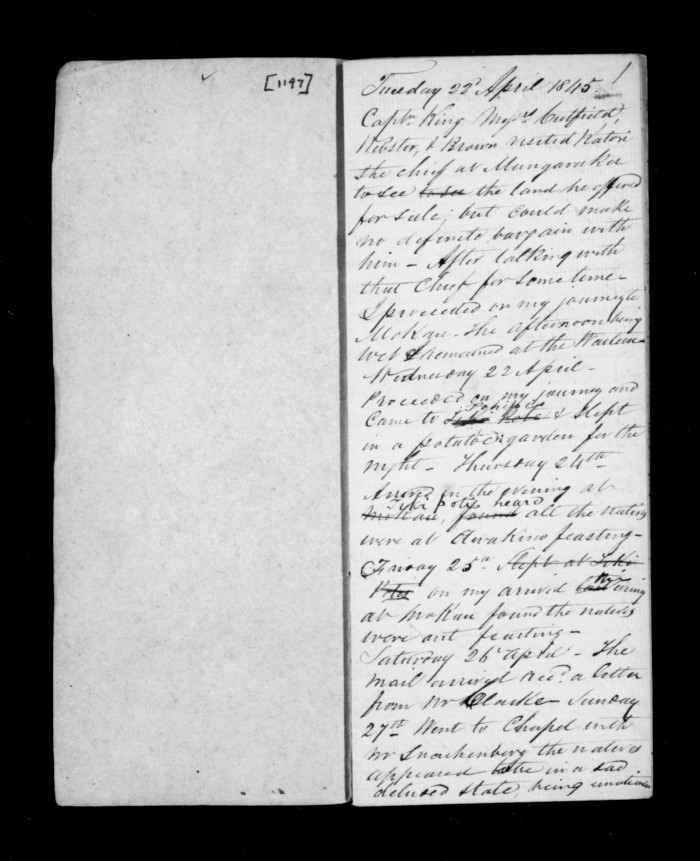 [1197]
1
Tuesday 22d April 1845.
Captn King Messrs Cutfield,
Webster, & Brown visited Katori
the chief at Mungaraka
to see to see the land he offered
for sale; but could make
no definite bargain with
him - After talking with
that Chief for some time -
I proceeded on my journey to
MoKau - The afternoon being
wet I remained at the
Wednesday 22 April -
Proceeded on my journey and
Came to & slept
in a potatoe garden for the
night - Thursday 24th
Arrived in the evening at
Tiki Potii heard
MoKau, found all the natives
were at Awakino feasting -
Friday 25th Slept at Tiki
Potii on my arrival last evening
at MoKau found the natives
were out feasting -
Saturday 26th April - The
mail arrived recd. a letter
from Mr Clarke - Sunday
27th Went to Chapel with
Mr Snackenberg the natives
appeared to be in a sad
deluded state, being